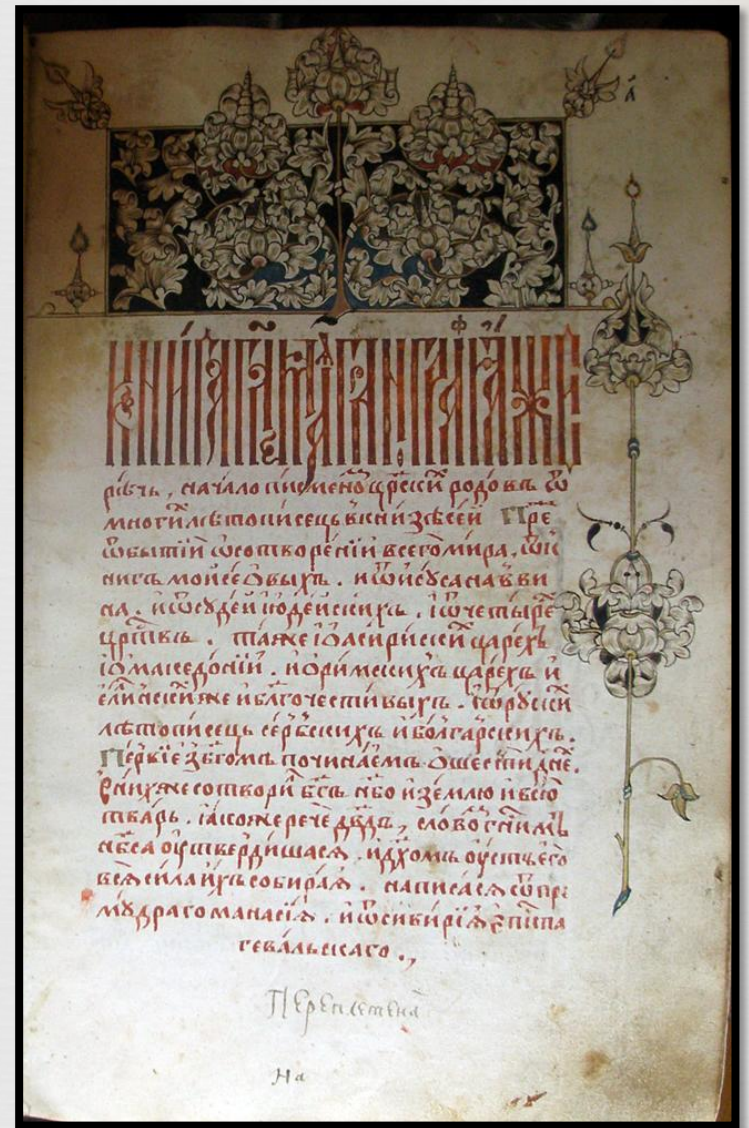 а҃
Книга гл҃емая гранографъ
рѣчь, начало писмено црⷭ҇кⷯи родовъ ѿ
многиⷯ лѣтописець в книзѣ сей Преⷤ
ѡ бытїи ѡ сотворенїи всего мира, ѿ
нигъ моисеѡвыхъ . и ѿ исуса наввви
на . и ѿ судей июдейскихъ . і ѡ четыреⷯ
црⷭ҇твъ . таже і ѡ асирискиⷯ царехъ
і ѡ македонїи . и ѡ римскихъ царехъ и
елинскиⷯ же и бл҃гочестивыхъ . ѿ рускиⷯ
лѣтописець сербскихъ и болгарскихъ .
Первїе з бг҃омъ починаемъ ѡ шести днеⷯ.
в нихже сотвори бг҃ъ нб҃о и землю и всю
тварь . якоже рече дв҃дъ, слово гⷭ҇ниⷨ
нб҃са оутвердишася . и дх҃омъ оустъ его
вся сила ихъ собирая . написася ѿ пре
мудраго манасїя . и ѿ сивирїя еппⷭ҇па
гевальскаго .,
Переплетена
На